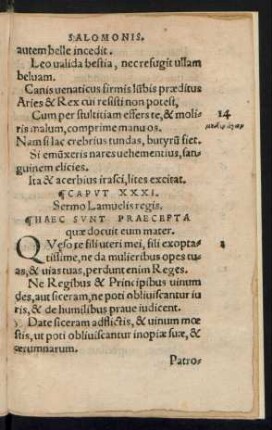 SALOMONIS.
autem belle incedit.
Leo ualida bestia, nec refugit ullam
beluam.
Canis uenaticus firmis lũbis præditus
Aries & Rex cui resisti non potest,
Cum per stultitiam effers te, & moli-
ris malum, comprime manu os.
14
Nam si lac crebrius tundas, butyrũ fiet.
Si emũxeris nares uehementius, san-
guinem elicies.
Ita & acerbius irasci, lites excitat.
¶CAPVT XXXI.
Sermo Lamuelis regis.
¶HAEC SVNT PRAECEPTA
quæ docuit eum mater.
QVęso te fili uteri mei, fili exopta-
tissime, ne da mulieribus opes tu-
as, & uias tuas, perdunt enim Reges.
Ne Regibus & Principibus uinum
des, aut siceram, ne poti obliuiscantur iu
ris, & de humilibus praue iudicent.
Date siceram adflictis, & uinum mœ
stis, ut poti obliuiscantur inopiæ suæ, &
ærumnarum.
Patro-